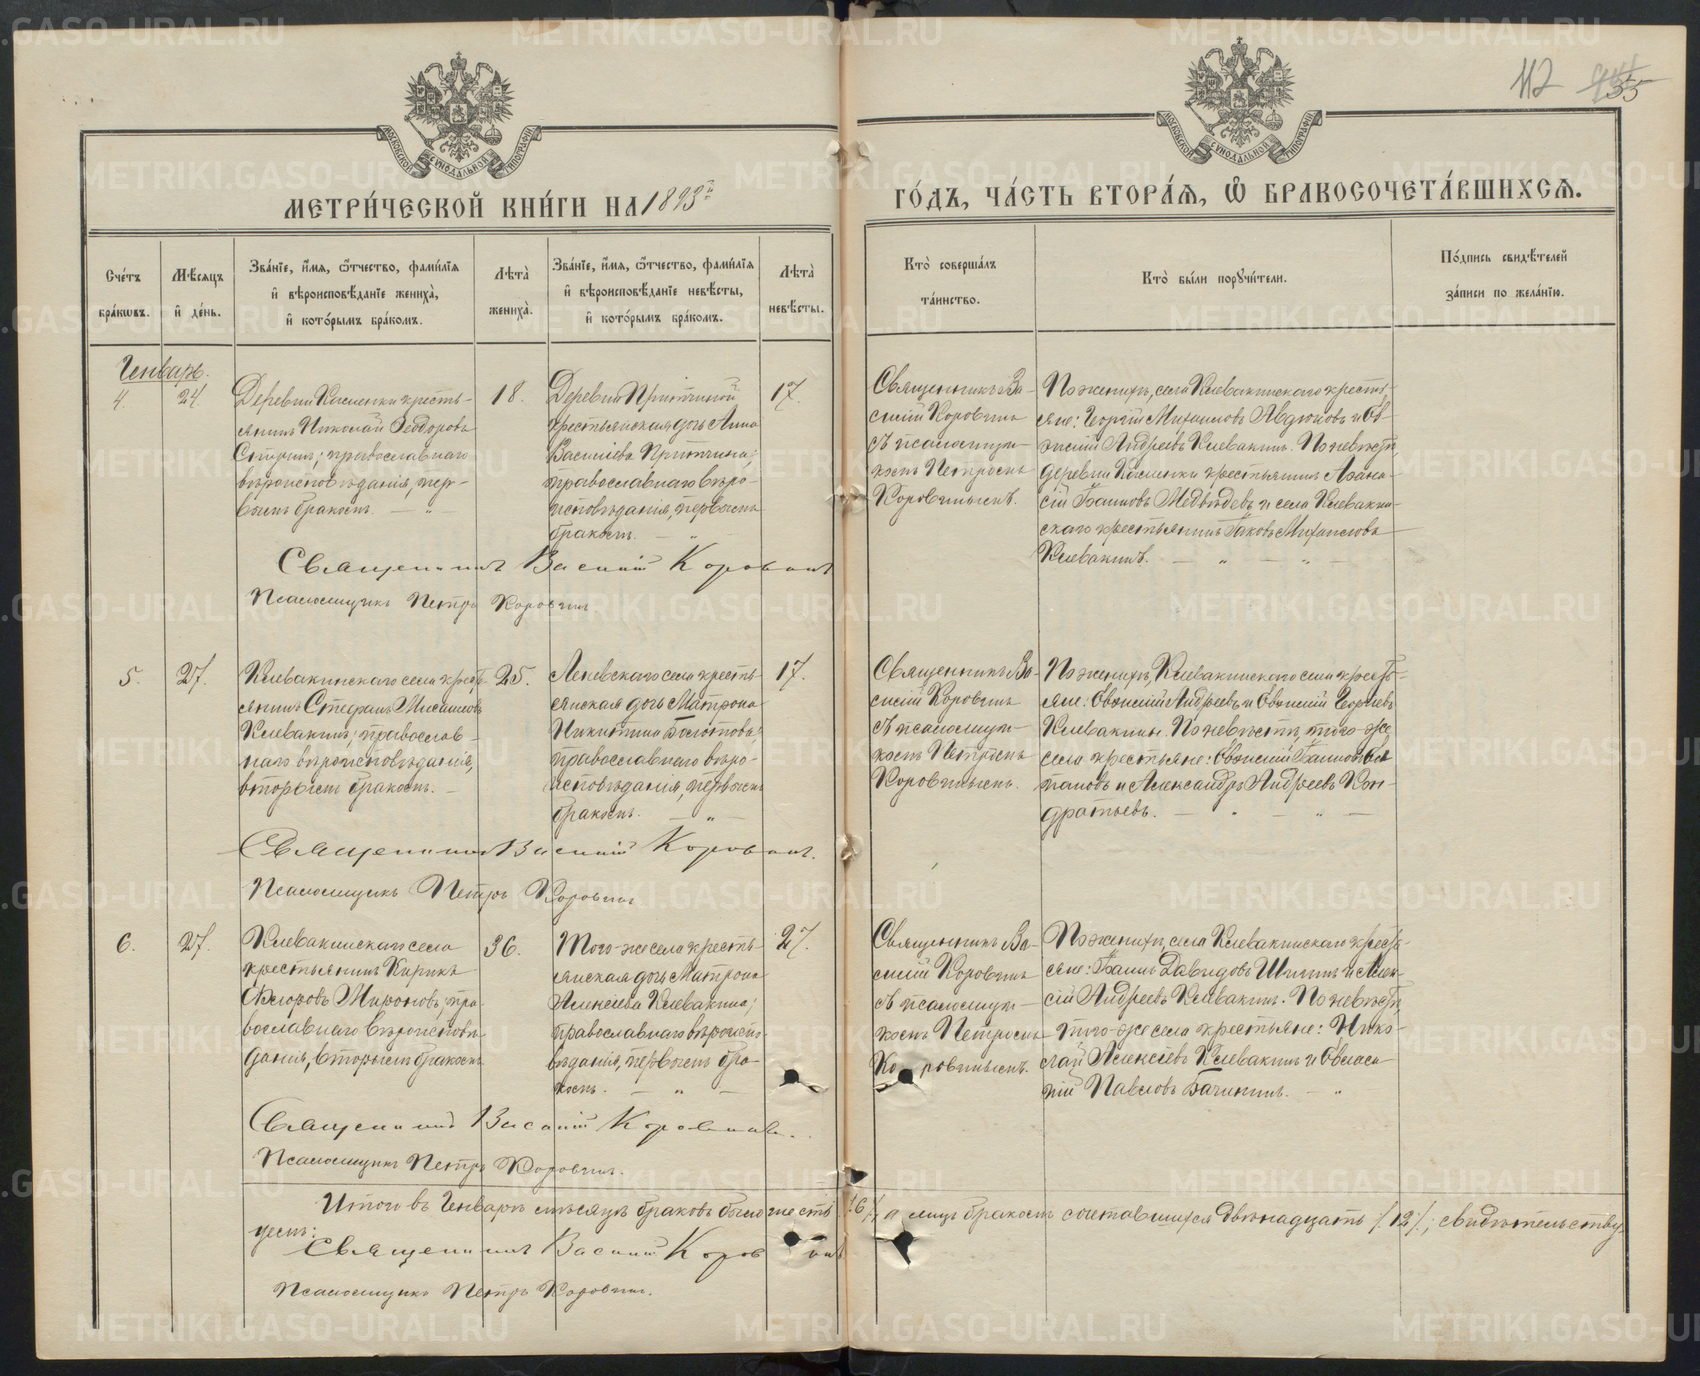 112 55
МОСКОВСКОЙ СУНОДАЛЬНОЙ ТИПОГРАФІИ
МОСКОВСКОЙ СУНОДАЛЬНОЙ ТИПОГРАФІИ
МЕТРИ́ЧЕСКОЙ КНИ́ГИ НА 1893й
ГО́ДЪ, ЧА́СТЬ ВТОРА́Я, Ѡ БРАКОСОЧЕТА́ВШИХСЯ.
Сче́тъ бра́кѡвъ.
Мѣ́сяцъ и҆ де́нь.
Зва́нїе, и҆́мя, ѻ҆́тчество, фами́лїя
и҆ вѣроисповѣ́данїе жениха̀,
и҆ кото́рымъ бра́комъ.
Лѣта̀ жениха̀.
Зва́нїе, и҆́мя, ѻ҆́тчество, фами́лїя
и҆ вѣроисповѣ́данїе невѣ́сты,
и҆ кото́рымъ бра́комъ.
Лѣта̀ невѣ́сты.
Кто̀ соверша́лъ
та́инство.
Кто̀ бы́ли порꙋчи́тели.
По́дпись свидѣ́телей
за́писи по жела́нїю.
Генварь.
4.
24
Деревни Косменки кресть-
янинъ Николай Ѳеодоровъ
православнаго
вѣроисповѣданія, пер-
вымъ бракомъ. — „ —
18.
Деревни Притчиной
крестьянская дочь Анна
Василіева Притчина;
православнаго вѣро-
исповѣданія, первымъ
бракомъ. — „ —
17.
Священникъ Ва-
силій Коровинъ
съ псаломщи-
комъ Петромъ
Коровинымъ.
По женихѣ, села Клевакинскаго кресть-
яне: Георгій Михаиловъ Авдюковъ и Ев-
Андреевъ Клевакинъ. По невѣстѣ,
деревни Косменки крестьянинъ Аѳана-
сій Іоанновъ Медвѣдевъ и села Клевакин-
скаго крестьянинъ Іаковъ Михаиловъ
Клевакинъ. — „ — „ —
Священникъ Василій Коровинъ
Псаломщикъ Петръ Коровинъ.
5.
27.
Клевакинскаго села крест-
янинъ Стефанъ Михаиловъ
Клевакинъ; православ-
наго вѣроисповѣданія,
вторымъ бракомъ. —
25.
Леневскаго села кресть-
янская дочь Матрона
Никитина Болотова;
православнаго вѣро-
исповѣданія, первымъ
бракомъ. — „ —
17.
Священникъ Ва-
силій Коровинъ
съ псаломщи-
комъ Петромъ
Коровинымъ.
По женихѣ, Клевакинскаго села кресть-
яне: Андреевъ и Георгіевъ
Клевакины. По невѣстѣ, того-же
села крестьяне: Іоанновъ
и Александръ Андреевъ Кон-
дратьевъ. — „ — „ —
Священникъ Василій Коровинъ.
Псаломщикъ Петръ Коровинъ
6.
27.
Клевакинскаго села
крестьянинъ Кирикъ
Мироновъ; пра-
вославнаго вѣроисповѣ-
данія, вторымъ бракомъ
36.
Того-же села кресть-
янская дочь Матрона
Алексіева Клевакина;
православнаго вѣроиспо-
вѣданія, первымъ бра-
комъ. — „ —
27.
Священникъ Ва-
силій Коровинъ
съ псаломщи-
комъ Петромъ
Коровинымъ.
По женихѣ, села Клевакинскаго кресть-
яне: Іоаннъ Давидовъ Шининъ и Алек-
сій Андреевъ Клевакинъ. По невѣстѣ,
того-же села крестьяне: Нико-
лай Алексіевъ Клевакинъ и
Павловъ Бачининъ. — „
Священникъ Василій Коровинъ.
Псаломщикъ Петръ Коровинъ.
Итого въ Генварѣ мѣсяцѣ браковъ было шесть /.6./, а лицъ бракомъ сочетавшихся двѣнадцать /.12./; свидѣтельству-
уемъ:
Священникъ Василій Коровинъ
Псаломщикъ Петръ Коровинъ.
METRIKI.GASO-URAL.RU